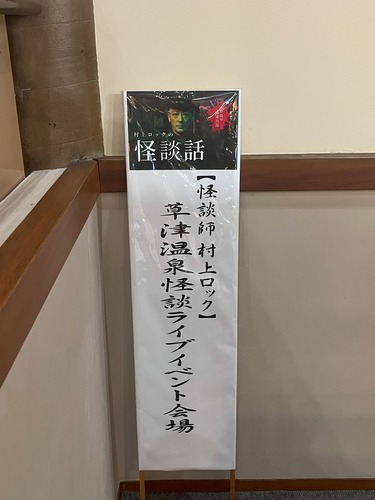 村上ロックの
怪談話
【怪談師 村上ロック】
草津温泉怪談ライブイベント会場